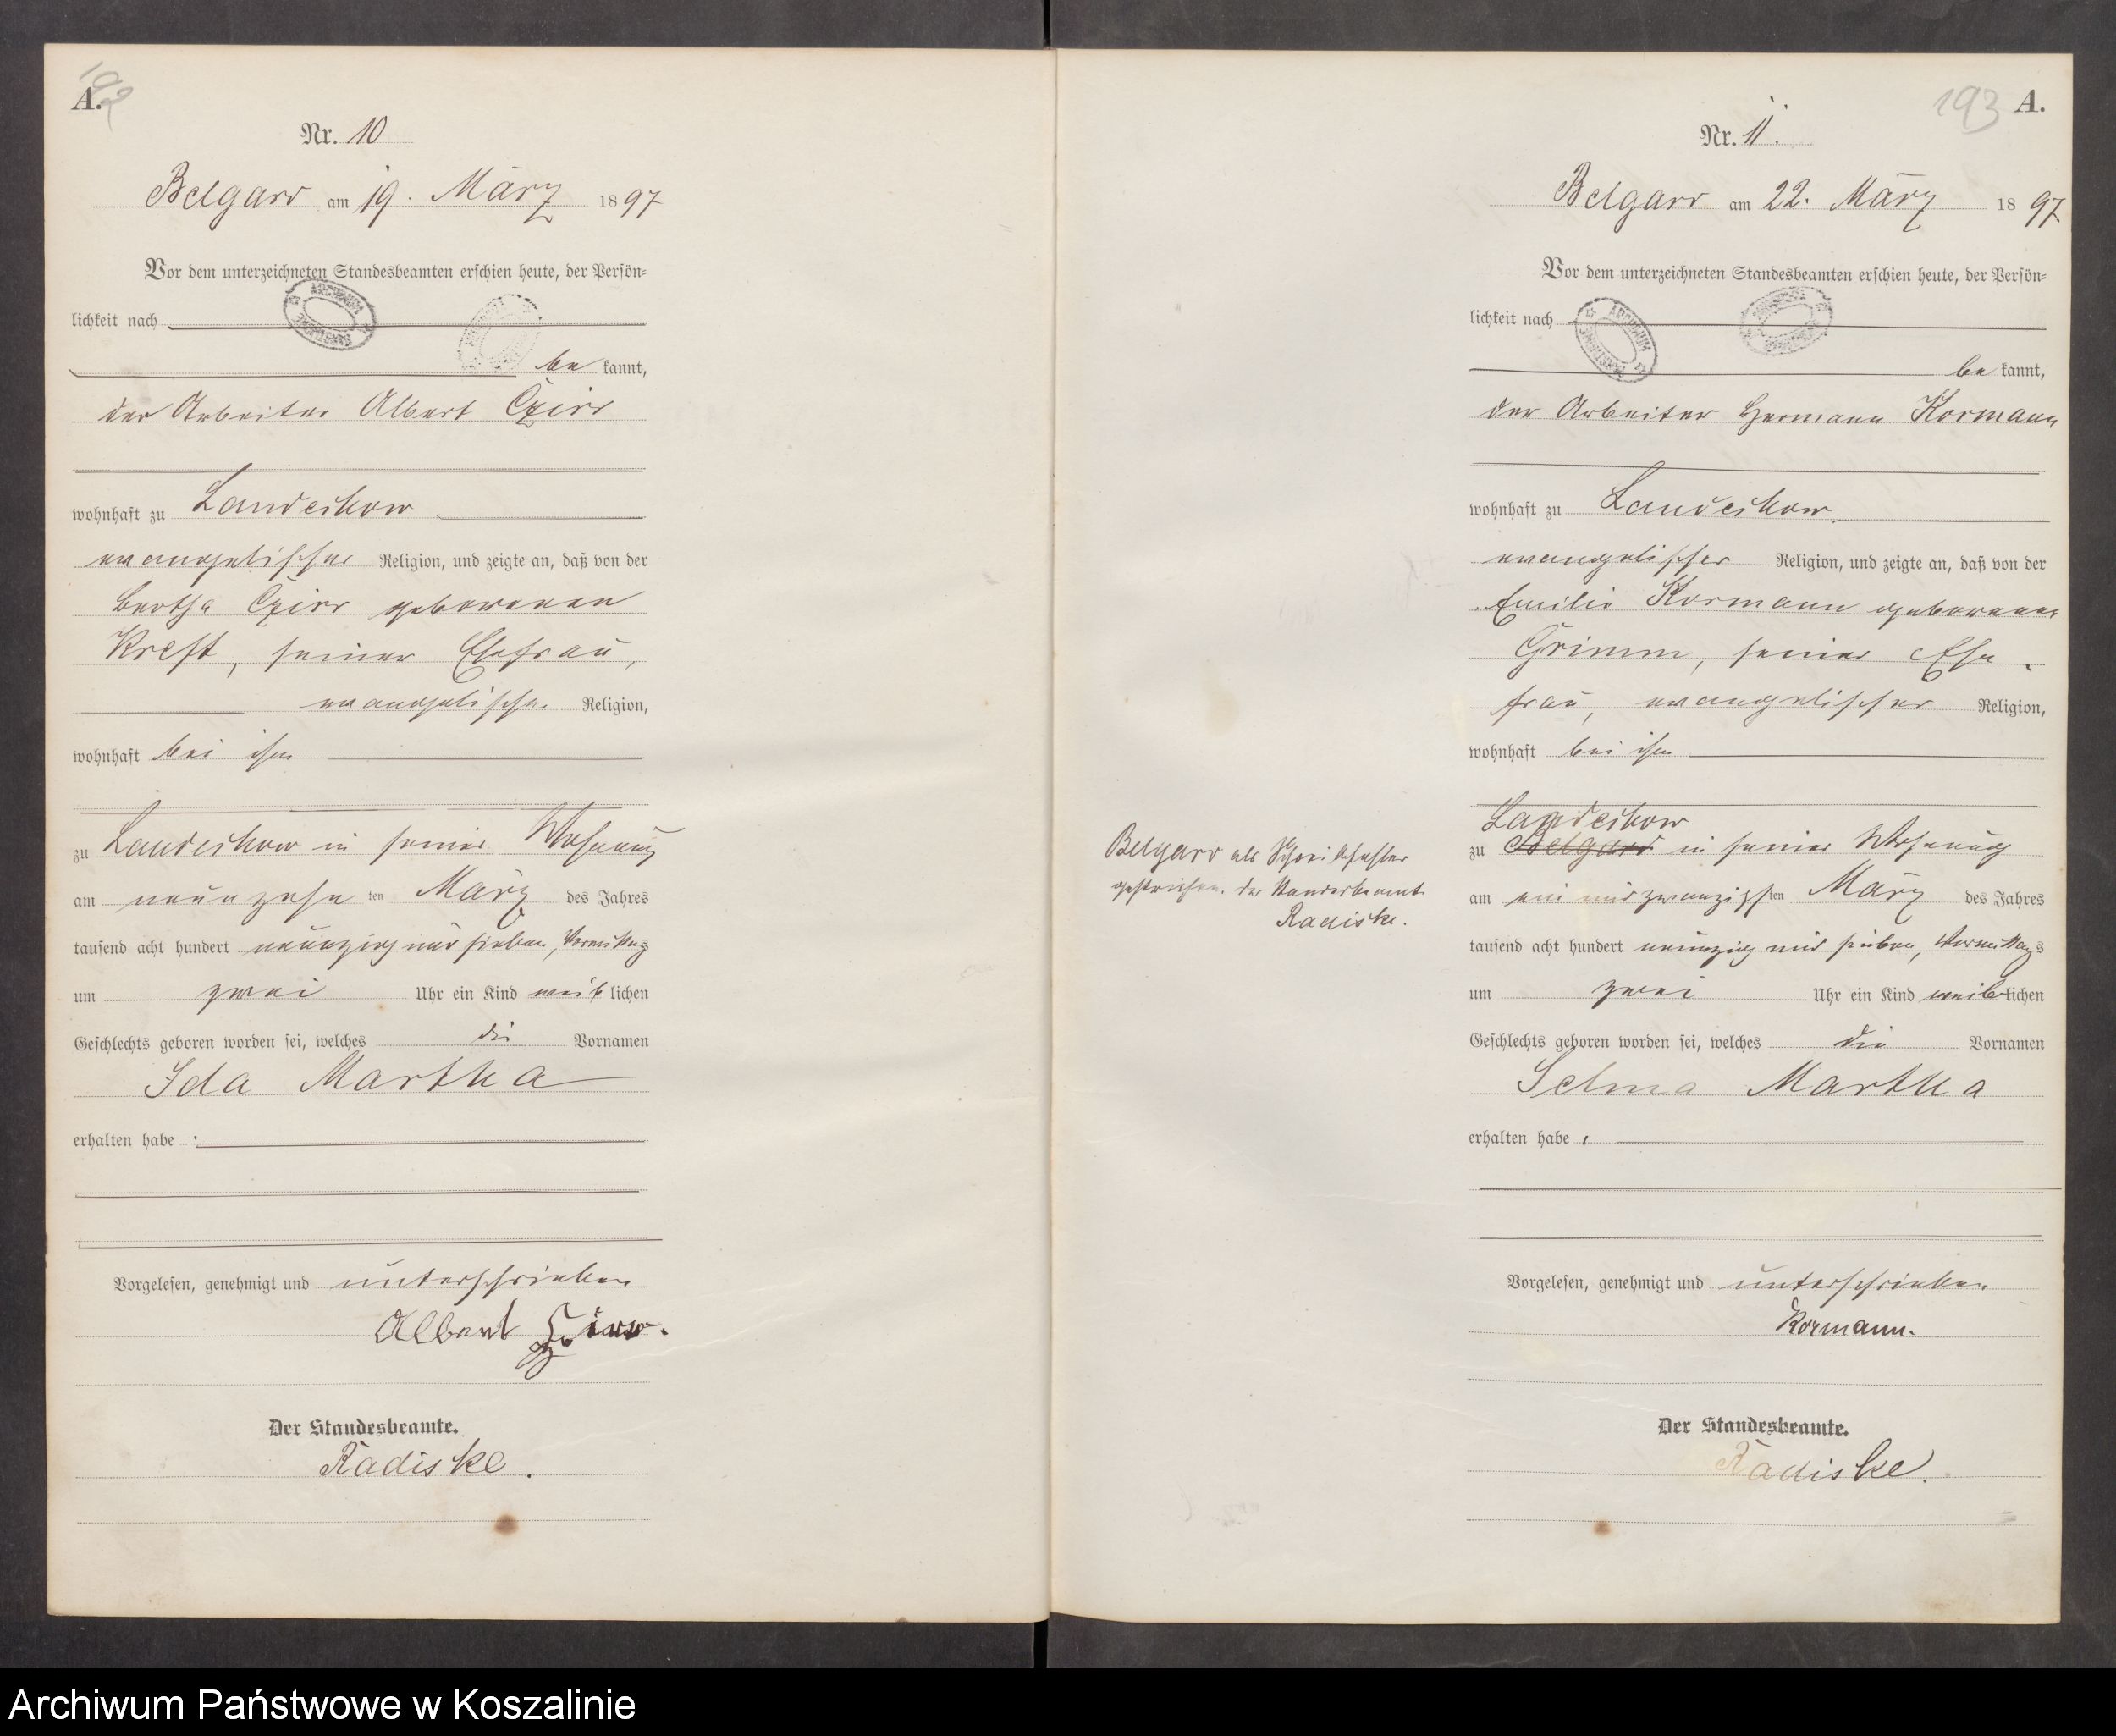 A.
Nr. 10
Belgard am 19. März 1897
Vor dem unterzeichneten Standesbeamten erschien heute, der Persön-
lichkeit nach
be kannt,
der Arbeiter Albert Czirr
wohnhaft zu Landechow
evangelischer Religion, und zeigte an, daß von der
Bertha Czirr geborenen
Kreft, seiner Ehefrau,
evangelischer Religion,
wohnhaft bei ihm
zu Landechow in seiner Wohnung
am neunzehn ten März des Jahres
tausend acht hundert neunzig und sieben, Vormittags
um zwei Uhr ein Kind weib lichen
Geschlechts geboren worden sei, welches die Vornamen
Ida Martha
erhalten habe.
Vorgelesen, genehmigt und unterschrieben
Albert Czirr.
Der Standesbeamte.
Radiske.
193 A.
Nr. 11.
Belgard am 22. März 1897
Vor dem unterzeichneten Standesbeamten erschien heute, der Persön-
lichkeit nach
be kannt,
der Arbeiter Hermann Kormann
wohnhaft zu Landechow
evangelischer Religion, und zeigte an, daß von der
Emilie Kormann geborenen
Grimm, seiner Ehe-
frau, evangelischer Religion,
wohnhaft bei ihm
Landechow
zu Belgard in seiner Wohnung
am ein und zwanzigsten März des Jahres
tausend acht hundert neunzig und sieben, Vormittags
um zwei Uhr ein Kind weiblichen
Geschlechts geboren worden sei, welches die Vornamen
Selma Martha
erhalten habe.
Vorgelesen, genehmigt und unterschrieben
Kormann.
Der Standesbeamte.
Radiske.
Belgard als Schreibfehler
gestrichen. Der Standesbeamte
Radiske.
Archiwum Państwowe w Koszalinie